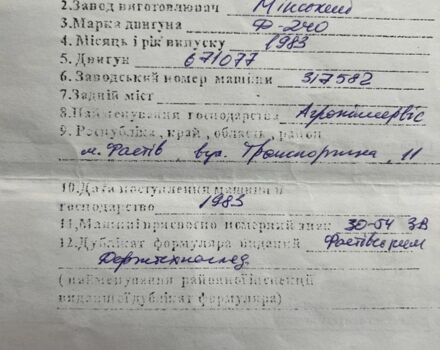 2.Завод виготовлювач Мінський
3.Марка двигуна Ф-240
4.Місяць і рік випуску 1983
5.Двигун 671077
6.Заводський номер машини 317582
7.Задній міст
8.Найменування господарства Агрохімсервіс
9.Республіка, край, область, район
м. Фастів, вул. Транспортна, 11
10.Дата поступлення машини в
господарство 1983
11.Машині присвоєно номерний знак 30-54 ЗВ
12.Дублікат формуляра виданий Фастівським
Держтехнагляд
( найменування районної інспекції
видавшої дублікат формуляра)